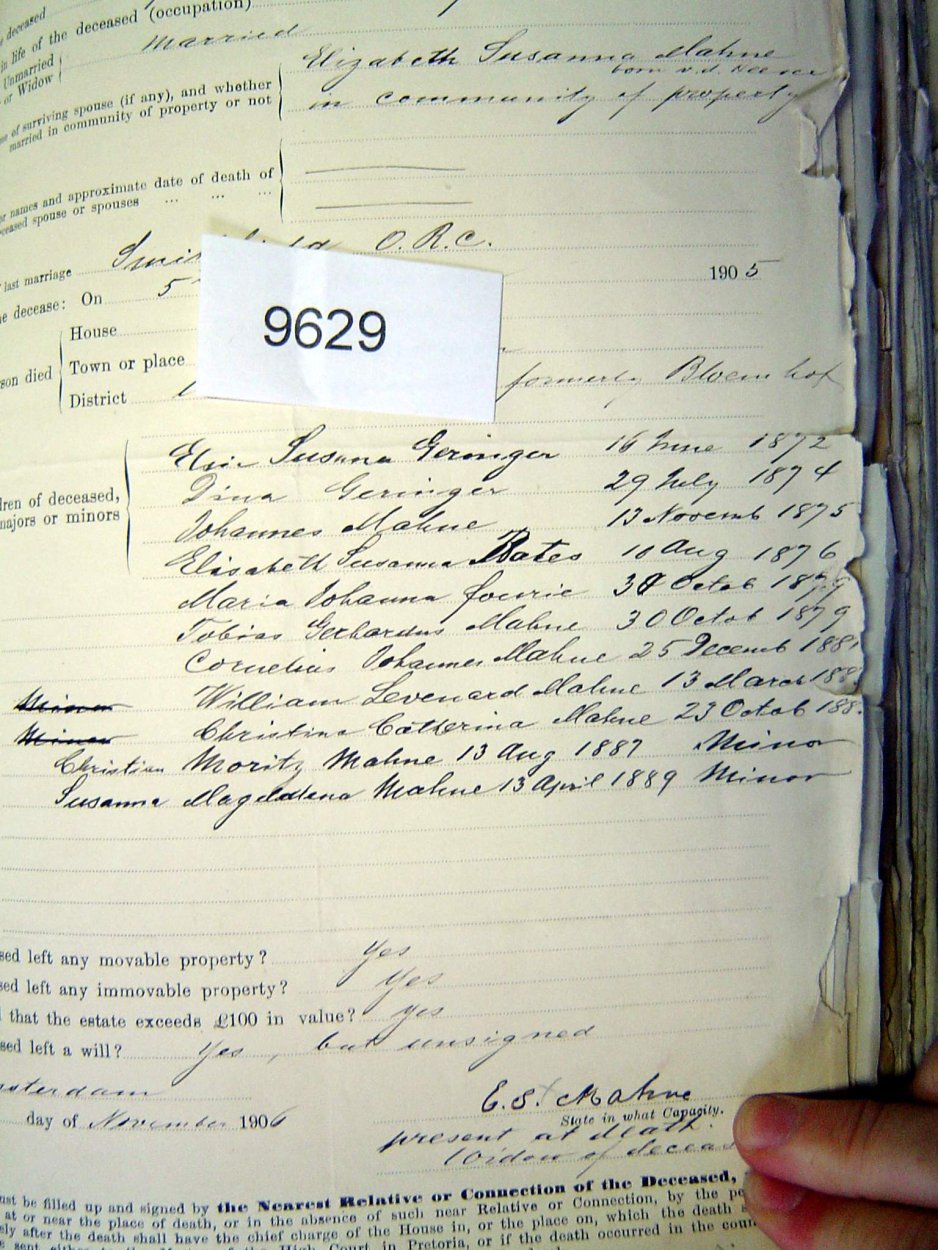 deceased
in life of the deceased (occupation)
Unmarried
or Widow
married
of surviving spouse (if any), and whether
married in community of property or not
Elizabeth Susanna Mahne
born v.d.
in community of property
names and approximate date of death of
spouse or spouses ... ... ...
last marriage
O.R.C.
decease: On 5 1905
9629
House
son died
Town or place
District
formerly Bloemhof
dren of deceased,
majors or minors
Elsie Susanna Geringer 16 June 1872
Dina Geringer 29 July 1874
Johannes Mahne 13 Novemb 1875
Elisabeth Susanna Bates 10 Aug 1876
Maria Johanna fourie Octob
Tobias Gerhardus Mahne 30 Octob 1879
Cornelius Johannes Mahne 25 Decemb
Minor William Levenard Mahne 13 March
Minor Christina Catherina Mahne 23 Octob
Christian Moritz Mahne 13 Aug 1887 Minor
Susanna Magdalena Mahne 13 April 1889 Minor
sed left any movable property? Yes
sed left any immovable property? Yes
that the estate exceeds £100 in value? Yes
sed left a will? Yes, but unsigned
sterdam
E.S. Mahne
State in what Capacity.
day of November 1906
present at death.
Widow of deceas
ust be filled up and signed by the Nearest Relative or Connection of the Deceased,
at or near the place of death, or in the absence of such near Relative or Connection, by the
ely after the death shall have the chief charge of the House in, or the place on, which the death
sent High Court in Pretoria, or if the death occurred in the